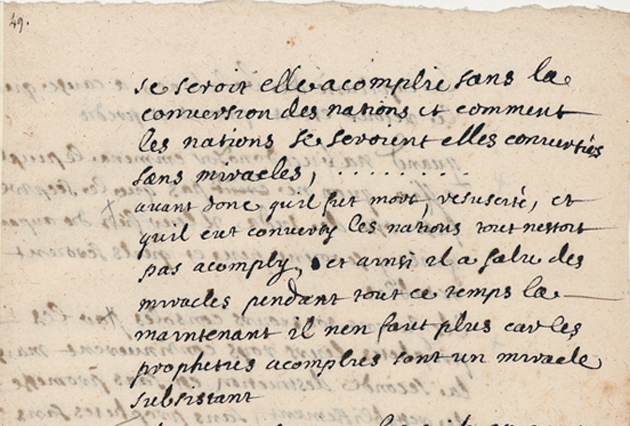 49.
se seroit elle acomplie sans la
conversion des nations et comment
les nations se seroient elles converties
sans miracles, . . . . . . . . . .
avant donc quil fut mort, resuscité, et
quil eut converty les nations tout nestoit
pas acomply, et ainsi il a falu des
miracles pendant tout ce temps la
maintenant il nen faut plus car les
propheties acomplies sont un miracle
subsistant